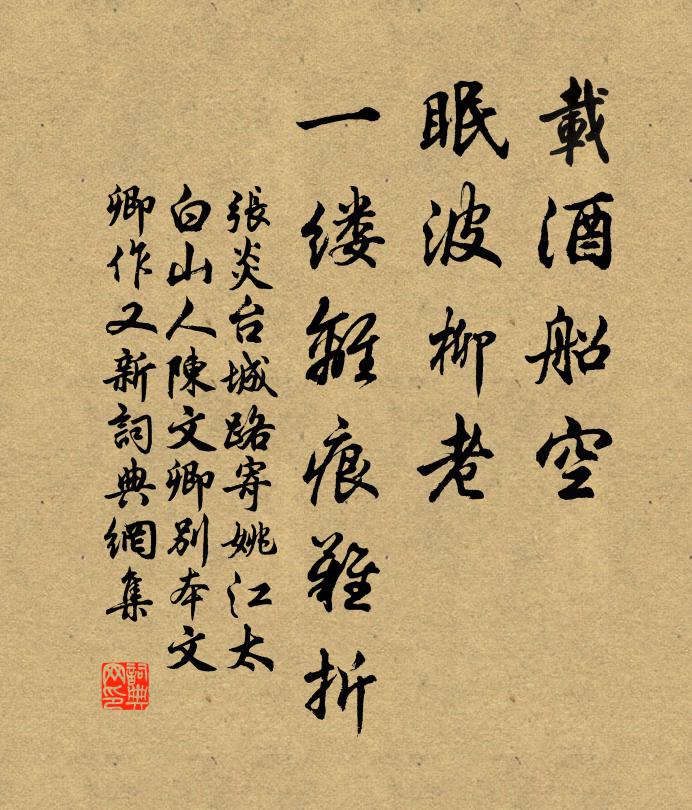 載酒船空
眠波柳老
一缕離痕難折
張炎台城路寄姚江太
白山人陳文卿别本文
卿作又新詞典網集
詞典網印